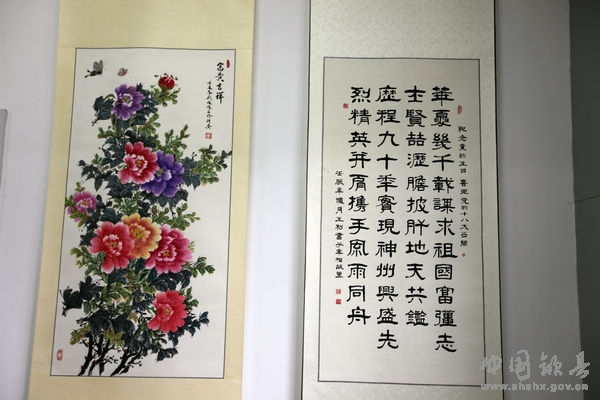 富贵吉祥
紀念党的生日 喜迎党的十八大召開
華夏幾千載謀求祖國富彊志
士賢喆瀝膽披肝地天共鑑
歷程九十年實現神州興盛先
烈精英并肩攜手風雨同舟
中国歙县
www.ahshx.gov.cn